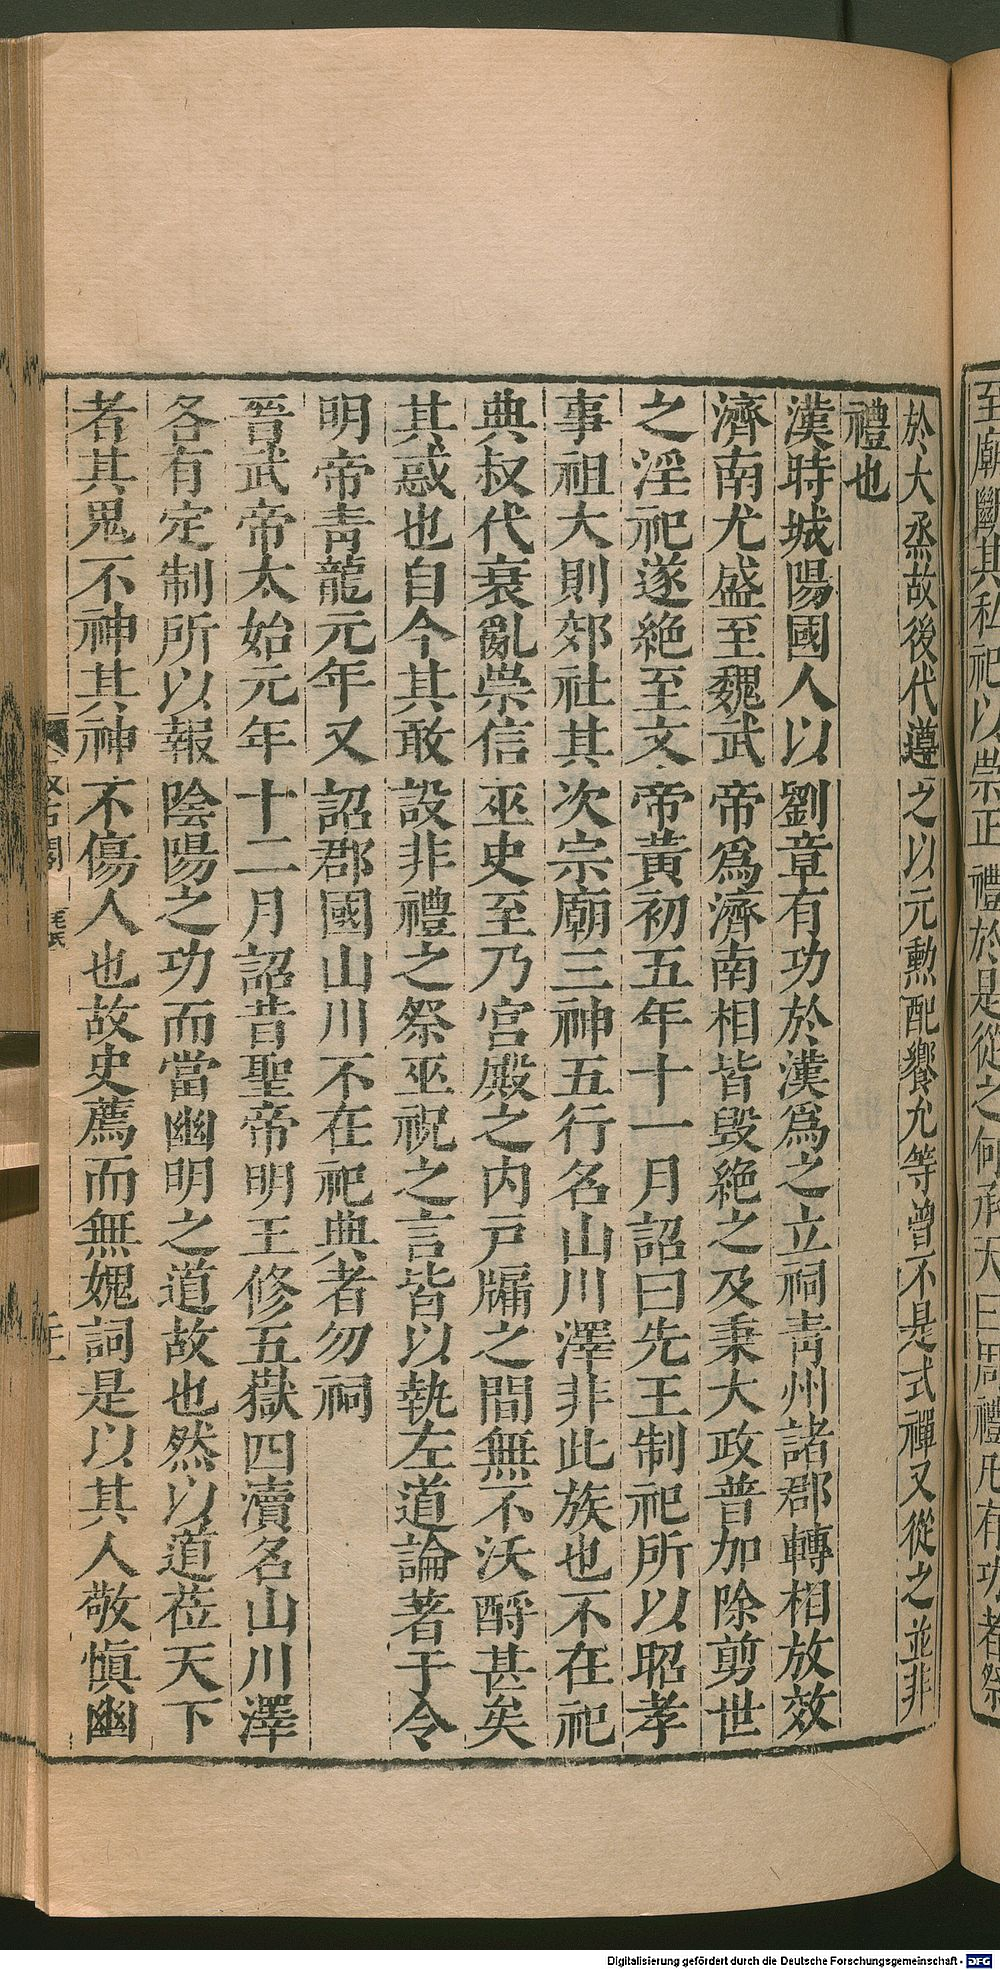 至廟闕其私祀以崇正禮於是從之何承天曰周禮凡有功者祭
於大烝故後代遵之以元勳配饗允等曾不是式禪又從之並非
禮也
漢時城陽國人以劉章有功於漢爲之立祠靑州諸郡轉相放效
濟南尤盛至魏武帝爲濟南相皆毀絶之及秉大政普加除剪世
之淫祀遂絶至文帝黃初五年十一月詔曰先王制祀所以昭孝
事祖大則郊社其次宗廟三神五行名山川澤非此族也不在祀
典叔代衰亂崇信巫史至乃宮殿之内戸牖之間無不沃酹甚矣
其惑也自今其敢設非禮之祭巫祝之言皆以執左道論著于令
明帝靑龍元年又詔郡國山川不在祀典者勿祠
晉武帝太始元年十二月詔昔聖帝明王修五嶽四瀆名山川澤
各有定制所以報陰陽之功而當幽明之道故也然以道莅天下
者其鬼不神其神不傷人也故史薦而無媿詞是以其人敬愼幽
汲古閣
毛氏
Digitalisierung gefördert durch die Deutsche Forschungsgemeinschaft - DFG